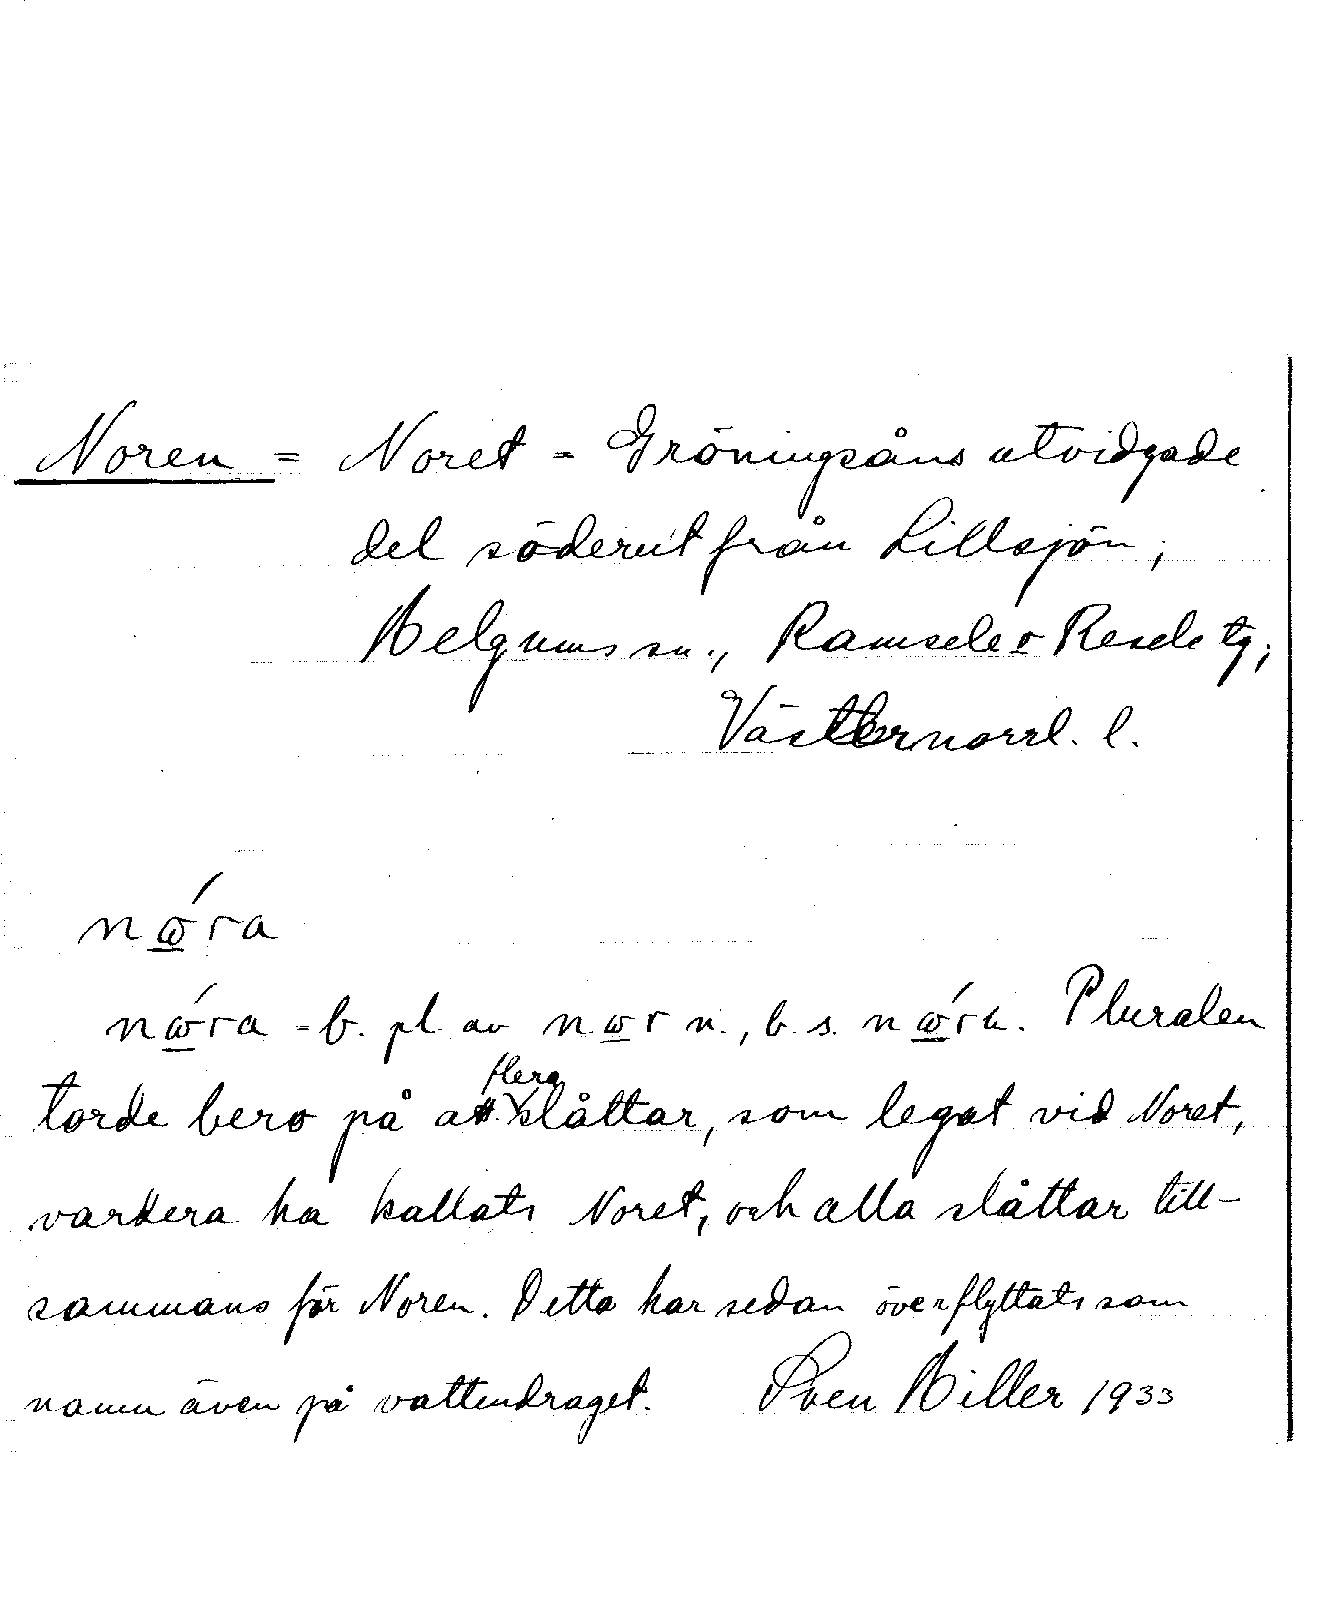 Noren = Noret = Gröningsåns utvidgade
del söderut från Lillsjön,
Helgums sn., Ramsele o Resele tg,
Västternorrl. l.
nώ̲ra
nώ̲ra = b. pl. av nω̲r n., b. s. nώ̲rə. Pluralen
torde bero på att flera slåttar, som legat vid Noret,
vardera ha kallats Noret, och alla slåttar till-
sammans för Noren. Detta har sedan överflyttats som
namn även på vattendraget. Sven Hiller 1933